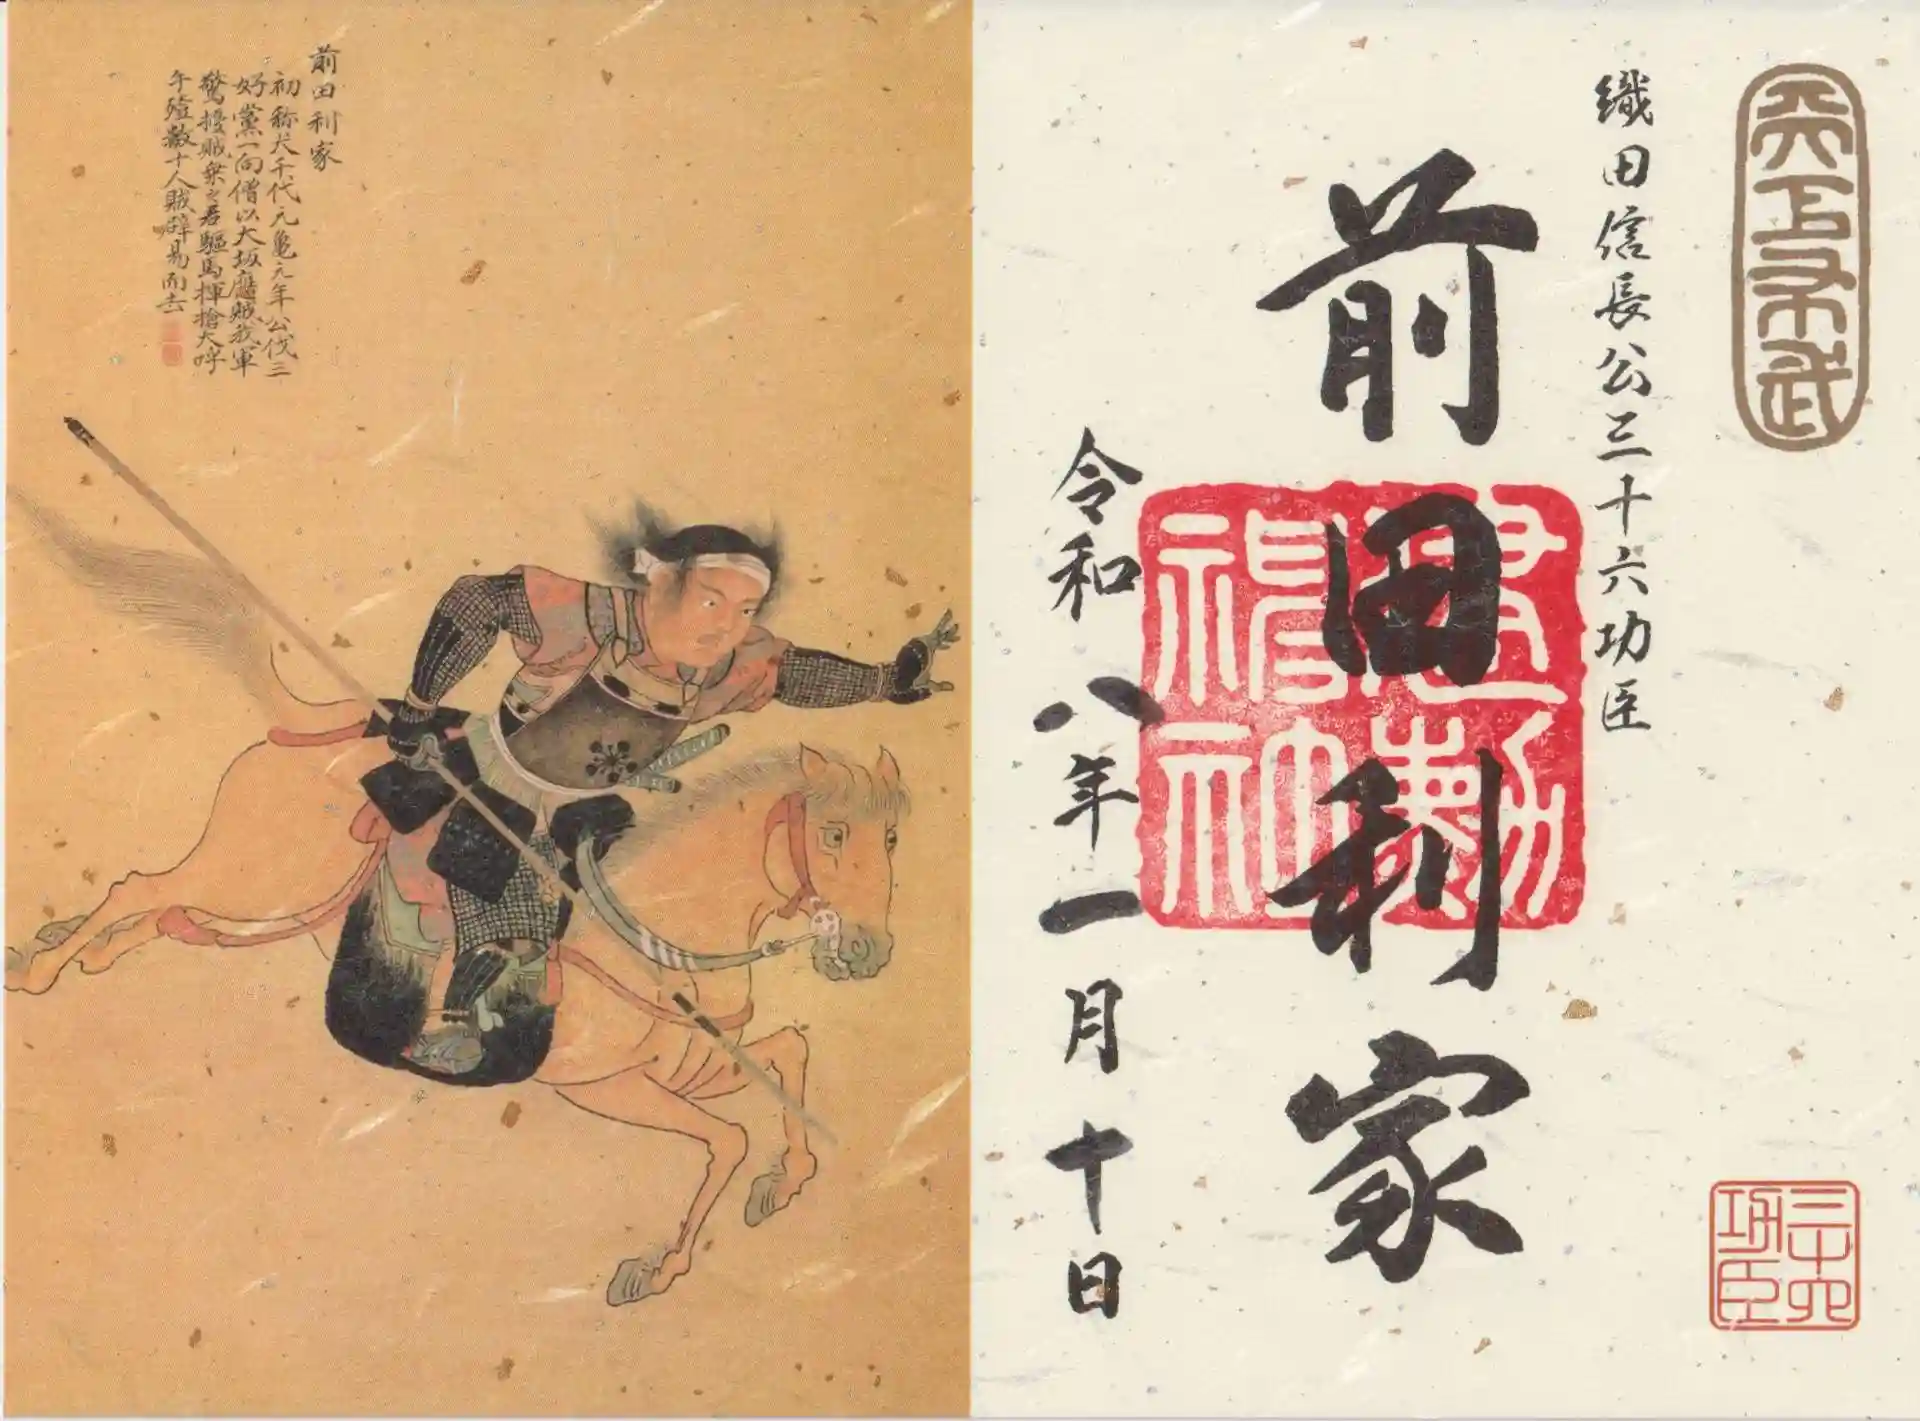 天下布武
織田信長公三十六功臣
前田利家
建勲神社
令和八年一月十日
三十六
功臣
前田利家
初称犬千代元亀元年公伐三
好黨一向僧以大坂應賊我軍
驚擾賊乗之君驅馬揮槍大呼
午殪數十人賊辟易而去